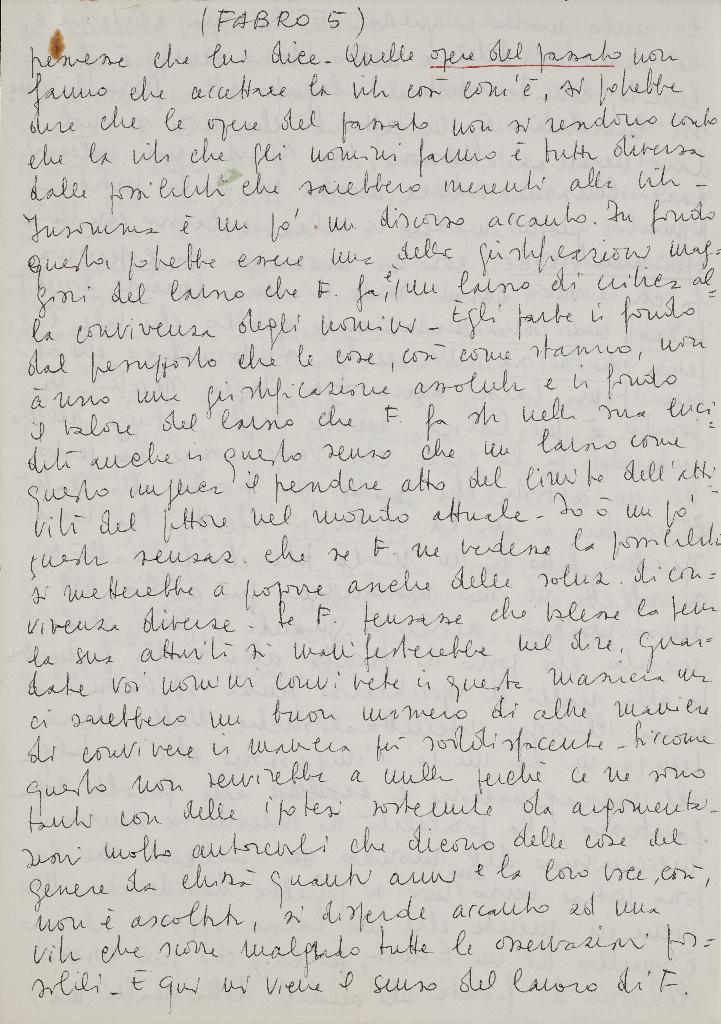 (FABRO 5)
permesse che lui dice - Quelle opere del passato non
fanno che accettare la vita così com'è, si potrebbe
dire che le opere del passato non si rendono conto
che la vita che gli uomini fanno è tutta diversa
dalle possibilità che sarebbero inerenti alla vita -
Insomma è un po' un discorso accanto. In fondo
questa potrebbe essere una delle giustificazioni mag-
giori del lavoro che F. fa, è un lavoro di critica al=
la convivenza degli uomini - Egli parte in fondo
dal presupposto che le cose, così come stanno, non
ànno una giustificazione assoluta e in fondo
il valore del lavoro che F. fa sta nella sua luci=
dità anche in questo senso che un lavoro come
questo implica il prendere atto del limite dell'atti-
vità del pittore nel mondo attuale - Io ò un po'
questa sensaz. che se F. ne vedesse la possibilità
si metterebbe a proporre anche delle soluz. di con=
vivenza diverse - Se F. pensasse che valesse la pena
la sua attività si manifesterebbe nel dire, guar=
date voi uomini convivete in questa maniera ma
ci sarebbero un buon numero di altre maniere
di convivere in maniera più soddisfacente - Siccome
questo non servirebbe a nulla perchè ce ne sono
tanti con delle ipotesi sostenute da argomenta-
zioni molto autorevoli che dicono delle cose del
genere da chissà quanti anni e la loro voce, così,
non è ascoltata, si disperde accanto ad una
vita che scorre malgrado tutte le osservazioni pos-
sibili - E qui vi viene il senso del lavoro di F.